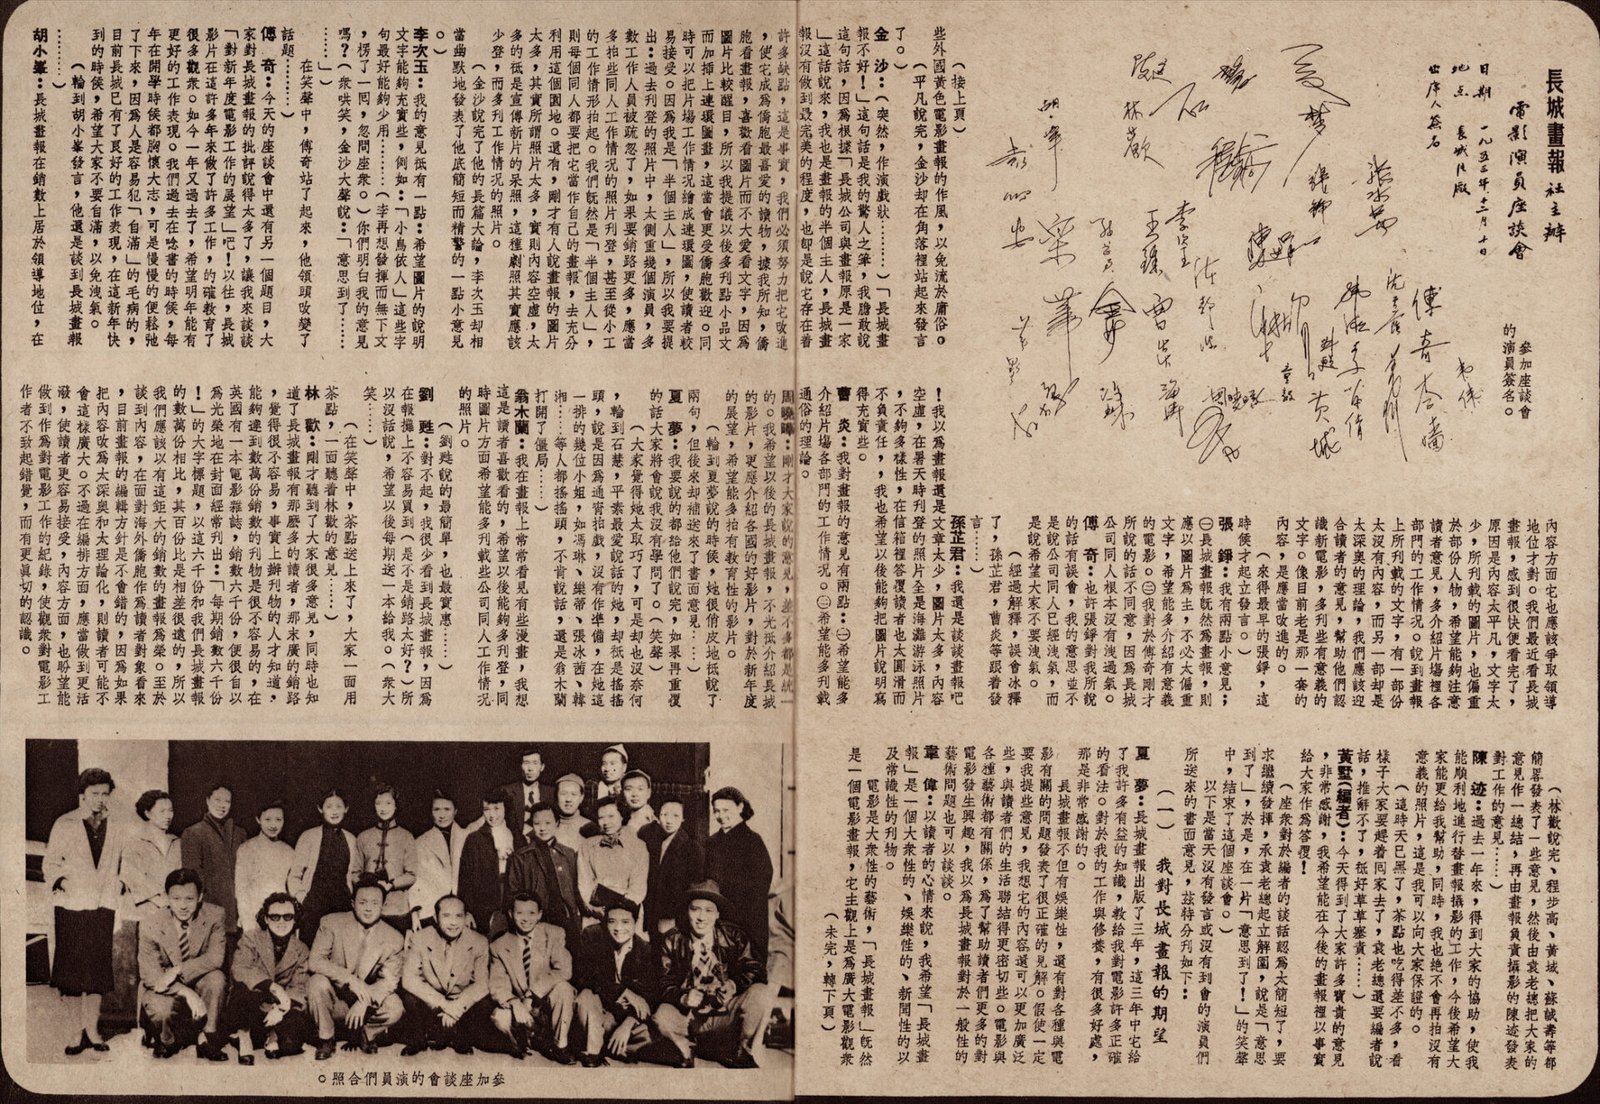 長城畫報社主辦
電影演員座談會
日期 一九五三年十二月十日
地点 長城片廠
出席人簽名
參加座談會
的演員簽名。
(接上頁)
些外國黃色電影畫報的作風,以免流於庸俗。
(平凡說完,金沙却在角落裡站起來發言
了。)
金 沙:(突然,作演戲狀………)「長城畫
報不好!」這句話是我的驚人之筆,我膽敢說
這句話,因為根據「長城公司與畫報原是一家
」這話說來,我也是畫報的半個主人,長城畫
報沒有做到最完美的程度,也即是說它存在着
許多缺點,這是事實,我們必須努力把它改進
,使它成為僑胞最喜愛的讀物,據我所知,僑
胞看畫報,喜歡看圖片而不大愛看文字,因為
圖片比較醒目,所以我提議以後多刊點小品文
而加插上連環圖畫,這當會更受僑胞歡迎。同
時可以把片場工作情況繪成連環圖,使讀者較
易接受。因為我是「半個主人」,所以我要提
出:過去刊登的照片中,太側重幾個演員,多
數工作人員被疏忽了,如果要銷路更多,應當
多拍些同人工作情況的照片刊登,甚至從小工
的工作情形拍起。我們旣然是「半個主人」,
則每個同人都要把它當作自己的畫報,去充分
利用這個園地。還有,剛才有人說畫報的圖片
太多,其實所謂照片太多,實則內容空虛,太
多的祗是宣傳新片的呆照,這種劇照其實應該
少登,而多刊工作情況的照片。
(金沙說完了他的長篇大論,李次玉却相
當幽默地發表了他底簡短而精警的一點小意見
。)
李次玉:我的意見祗有一點:希望圖片的說明
文字能夠充實些,例如:「小鳥依人」這些字
句最好能夠少用………(李再想發揮而無下文
,愣了一囘,忽問座衆。)你們明白我的意見
嗎?(衆哄笑,金沙大聲說:「意思到了……
……」)
在笑聲中,傅奇站了起來,他領頭改變了
話題…………)
傅 奇:今天的座談會中還有另一個題目,大
家對長城畫報的批評說得太多了,讓我來談談
「對新年度電影工作的展望」吧!以往,長城
影片在這許多年來做了許多工作,的確教育了
很多觀衆。如今一年又過去了,希望明年能有
更好的工作表現。我們過去在唸書的時候,每
年在開學時候都胸懷大志,可是慢慢的便鬆弛
了下來,因為人是容易犯「自滿」的毛病的,
目前長城已有了良好的工作表現,在這新年快
到的時候,希望大家不要自滿,以免洩氣。
(輪到胡小峯發言,他還是談到長城畫報
………)
胡小峯:長城畫報在銷數上居於領導地位,在
內容方面它也應該爭取領導
地位才對。我們最近看長城
畫報,感到很快便看完了,
原因是內容太平凡,文字太
少,所刊載的圖片,也偏重
於部份人物,希望能夠注意
讀者意見,多介紹片場裡各
部門的工作情況。說到畫報
上所刊載的文字,有一部份
太沒有內容,而另一部却是
太深奧的理論,我們應該迎
合讀者的意見,幫助他們認
識新電影,多刊些有意義的
文字。像目前老是那一套的
內容,
(來得最早的張錚,這
時候才起立發言。)
張 錚:我有兩點小意見:
㊀長城畫報旣然為畫報,則
應以圖片為主,不必太偏重
文字,希望能多介紹有意義
的電影。㊁我對於傅奇剛才
所說的話不同意,因為長城
公司同人根本沒有洩過氣。
傅 奇:也許張錚對我所說
的話有誤會,我的意思並不
是說公司同人已經洩氣,而
是說希望大家不要洩氣。
(經過解釋,誤會冰釋
了,孫芷君,曹炎等跟着發
言……)
孫芷君:我還是談談畫報吧
!我以為畫報還是文章太少,圖片太多,內容
空虛,在暑天時刊登的照片全是海灘游泳照片
,不夠多樣性,在信箱裡答覆讀者也太圓滑而
不負責任,我也希望以後能夠把圖片說明寫
得充實些。
曹 炎:我對畫報的意見有兩點:㊀希望能多
介紹片場各部門的工作情況。㊁希望能多刊載
通俗的理論。
周曉曄:剛才大家說的意見,差不多都是統一
的。我希望以後的長城畫報,不光祗介紹長城
的影片,更應介紹各國的好影片,對於新年度
的展望,希望能多拍有教育性的影片。
(輪到夏夢說的時候,她很俏皮地祗說了
兩句,但後來却補送來了書面意見……)
夏 夢:我要說的都給他們說完,如果再重覆
的話大家將會說我沒有學問了。(笑聲)
(大家覺得她太取巧了,可是也沒奈何
,輪到石慧,平素最愛說話的她,却祗是搖搖
頭,說是因為通宵拍戲,沒有作準備,在她這
一排的幾位小姐,如馮琳、樂蒂、張冰茜、韓
湘……等人都搖搖頭,不肯說話,還是翁木蘭
打開了僵局……)
翁木蘭:我在畫報上常常看見有些漫畫,我想
這是讀者喜歡看的,希望以後能夠多刊登,同
時圖片方面希望能多刊載些公司同人工作情況
的照片。
(劉甦說的最簡單,也最實惠……)
劉 甦:對不起,我很少看到長城畫報,因為
在報攤上不容易買到(是不是銷路太好?)所
以沒話說,希望以後每期送一本給我。(衆大
笑……)
(在笑聲中,茶點送上來了,大家一面用
茶點,一面聽着林歡的意見……)
林 歡:剛才聽到了大家很多意見,同時也知
道了長城畫報有那麼多的讀者,那末廣的銷路
,覺得很不容易,事實上辦刊物的人才知道,
能夠達到數萬份銷數的刊物是很不容易的,在
英國有一本電影雜誌,銷數六千份,便很自以
為光榮地在封面經常刊出:「每期銷數六千份
!」的大字標題,以這六千份和我們長城畫報
的數萬份相比,其百份比是相差很遠的,所以
我們應該以有這鉅大的銷數的畫報為榮。至於
談到內容,在面對海外僑胞作為讀者對象看來
,目前畫報的編輯方針是不會錯的,因為如果
把內容改為太深奧和太理論化,則讀者可能不
會這樣廣大。不過在編排方面,應當做到更活
潑,使讀者更容易接受,內容方面,也盼望能
做到作為對電影工作的紀錄,使觀衆對電影工
作者不致起錯覺,而有更真切的認識。
(林歡說完、程步高、黃域、蘇誠壽等都
簡畧發表了一些意見,然後由袁老總把大家的
意見作一總結,再由畫報負責攝影的陳迹發表
對工作的意見……)
陳 迹:過去一年來,得到大家的協助,使我
能順利地進行替畫報攝影的工作,今後希望大
家能更給我幫助,同時,我也絕不會再拍沒有
意義的照片,這是我可以向大家保證的。
(這時天已黑了,茶點也吃得差不多,看
樣子大家要趕着囘家去了,袁老總還要編者說
話,推辭不了,祗好草草塞責……)
黃墅(編者):今天得到了大家許多寶貴的意見
,非常感謝,我希望能在今後的畫報裡以事實
給大家作為答覆!
(座衆對於編者的談話認為太簡短了,要
求繼續發揮,承袁老總起立解圍,說是「意思
到了」,於是,在一片「意思到了!」的笑聲
中,結束了這個座談會。)
以下是當天沒有發言或沒有到會的演員們
所送來的書面意見,茲特分刊如下:
(一) 我對長城畫報的期望
夏 夢:長城畫報出版了三年,這三年中它給
了我許多有益的知識,教給我對電影許多正確
的看法。對於我的工作與修養,有很多好處,
那是非常感謝的。
長城畫報不但有娛樂性,還有對各種與電
影有關的問題發表了很正確的見解。假使一定
要我提些意見,我想它的內容還可以更加廣泛
些,與讀者們的生活聯結得更密切些。電影與
各種藝術都有關係,為了幫助讀者們更多的對
電影發生興趣,我以為長城畫報對於一般性的
藝術問題也可以談談。
韋 偉:以讀者的心情來說,我希望「長城畫
報」是一個大衆性的、娛樂性的、新聞性的以
及常識性的刊物。
電影是大衆性的藝術,「長城畫報」旣然
是一個電影畫報,它主觀上是為廣大電影觀衆
(未完,轉下頁)
參加座談會的演員們合照。